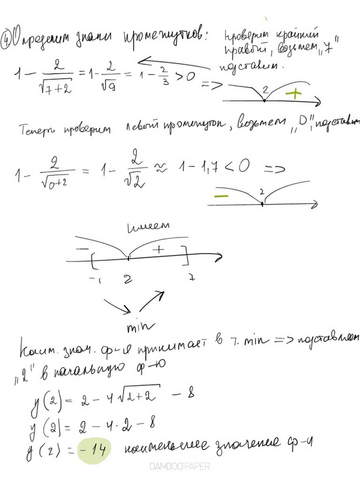 ④ Определим знаки промежутков: Проверим крайний
правый, возьмем „7"
подставим.
1 - 2/√(7+2) = 1 - 2/√9 = 1 - 2/3 > 0 =>
2 +
Теперь проверим левый промежуток, возьмем „0", подставим
1 - 2/√(0+2) = 1 - 2/√2 ≈ 1 - 1,7 < 0 =>
- 2
имеем
- +
-1 2 7
min
Наим. знач. ф-я принимает в т. min => подставляем
„2" в начальную ф-ю
y(2) = 2 - 4√(2+2) - 8
y(2) = 2 - 4·2 - 8
y(2) = -14 наименьшее значение ф-и
BAMBOO PAPER